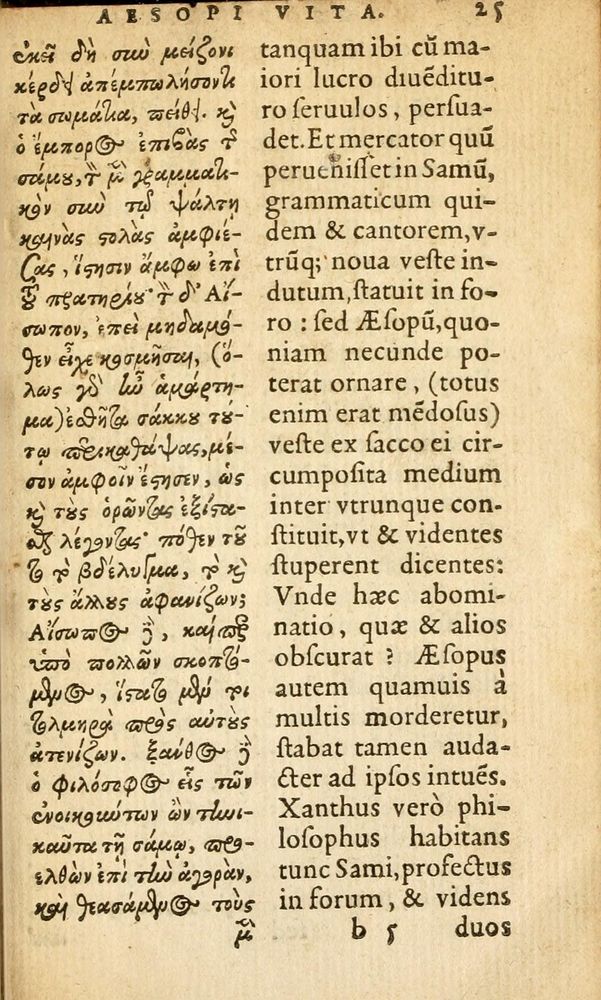 AESOPI VITA. 25
ἐκεῖ δὴ σὺν μείζονι
κέρδει ἀπεμπωλήσοντι
τὰ σωμάτια, πείθει. καὶ
ὁ ἔμπορος ἐπιβὰς τῆς
σάμου, τὸν μὲν γραμματι-
κὸν σὺν τῷ ψάλτῃ
καινὰς στολὰς ἀμφιέ-
σας, ἵστησιν ἄμφω ἐπὶ
τοῦ πρατηρίου· τὸν δ' Αἴ-
σωπον, ἐπεὶ μηδαμό-
θεν εἶχε κοσμῆσαι, (ὅ-
λως γὰρ ἦν ἁμάρτη-
μα) ἐσθῆτα σάκκου τού-
τῳ περικαθάψας, μέ-
σον ἀμφοῖν ἔστησεν, ὡς
καὶ τοὺς ὁρῶντας ἐξίστα-
σθαι λέγοντας· πόθεν τοῦ-
το τὸ βδέλυγμα, τὸ καὶ
τοὺς ἄλλους ἀφανίζων;
Αἴσωπος δὲ, καίπερ
ὑπὸ πολλῶν σκοπτό-
μενος, ἵστατο μέντοι
τολμηρὰ πρὸς αὐτοὺς
ἀτενίζων. ξάνθος δὲ
ὁ φιλόσοφος εἷς τῶν
ἐνοικούντων ὢν τηνι-
καῦτα τῇ σάμῳ, προ-
ελθὼν ἐπὶ τὴν ἀγορὰν,
καὶ θεασάμενος τοὺς
μὲν
tanquam ibi cū ma-
iori lucro diuēditu-
ro ſeruulos, perſua-
det. Et mercator quū
perueniſſet in Samū,
grammaticum qui-
dem & cantorem, v-
trūq; noua veſte in-
dutum, ſtatuit in fo-
ro : ſed Æſopū, quo-
niam necunde po-
terat ornare, (totus
enim erat mēdoſus)
veſte ex ſacco ei cir-
cumpoſita medium
inter vtrunque con-
ſtituit, vt & videntes
ſtuperent dicentes:
Vnde hæc abomi-
natio, quæ & alios
obſcurat ? Æſopus
autem quamuis à
multis morderetur,
ſtabat tamen auda-
cter ad ipſos intuēs.
Xanthus verò phi-
loſophus habitans
tunc Sami, profectus
in forum, & videns
b 5 duos